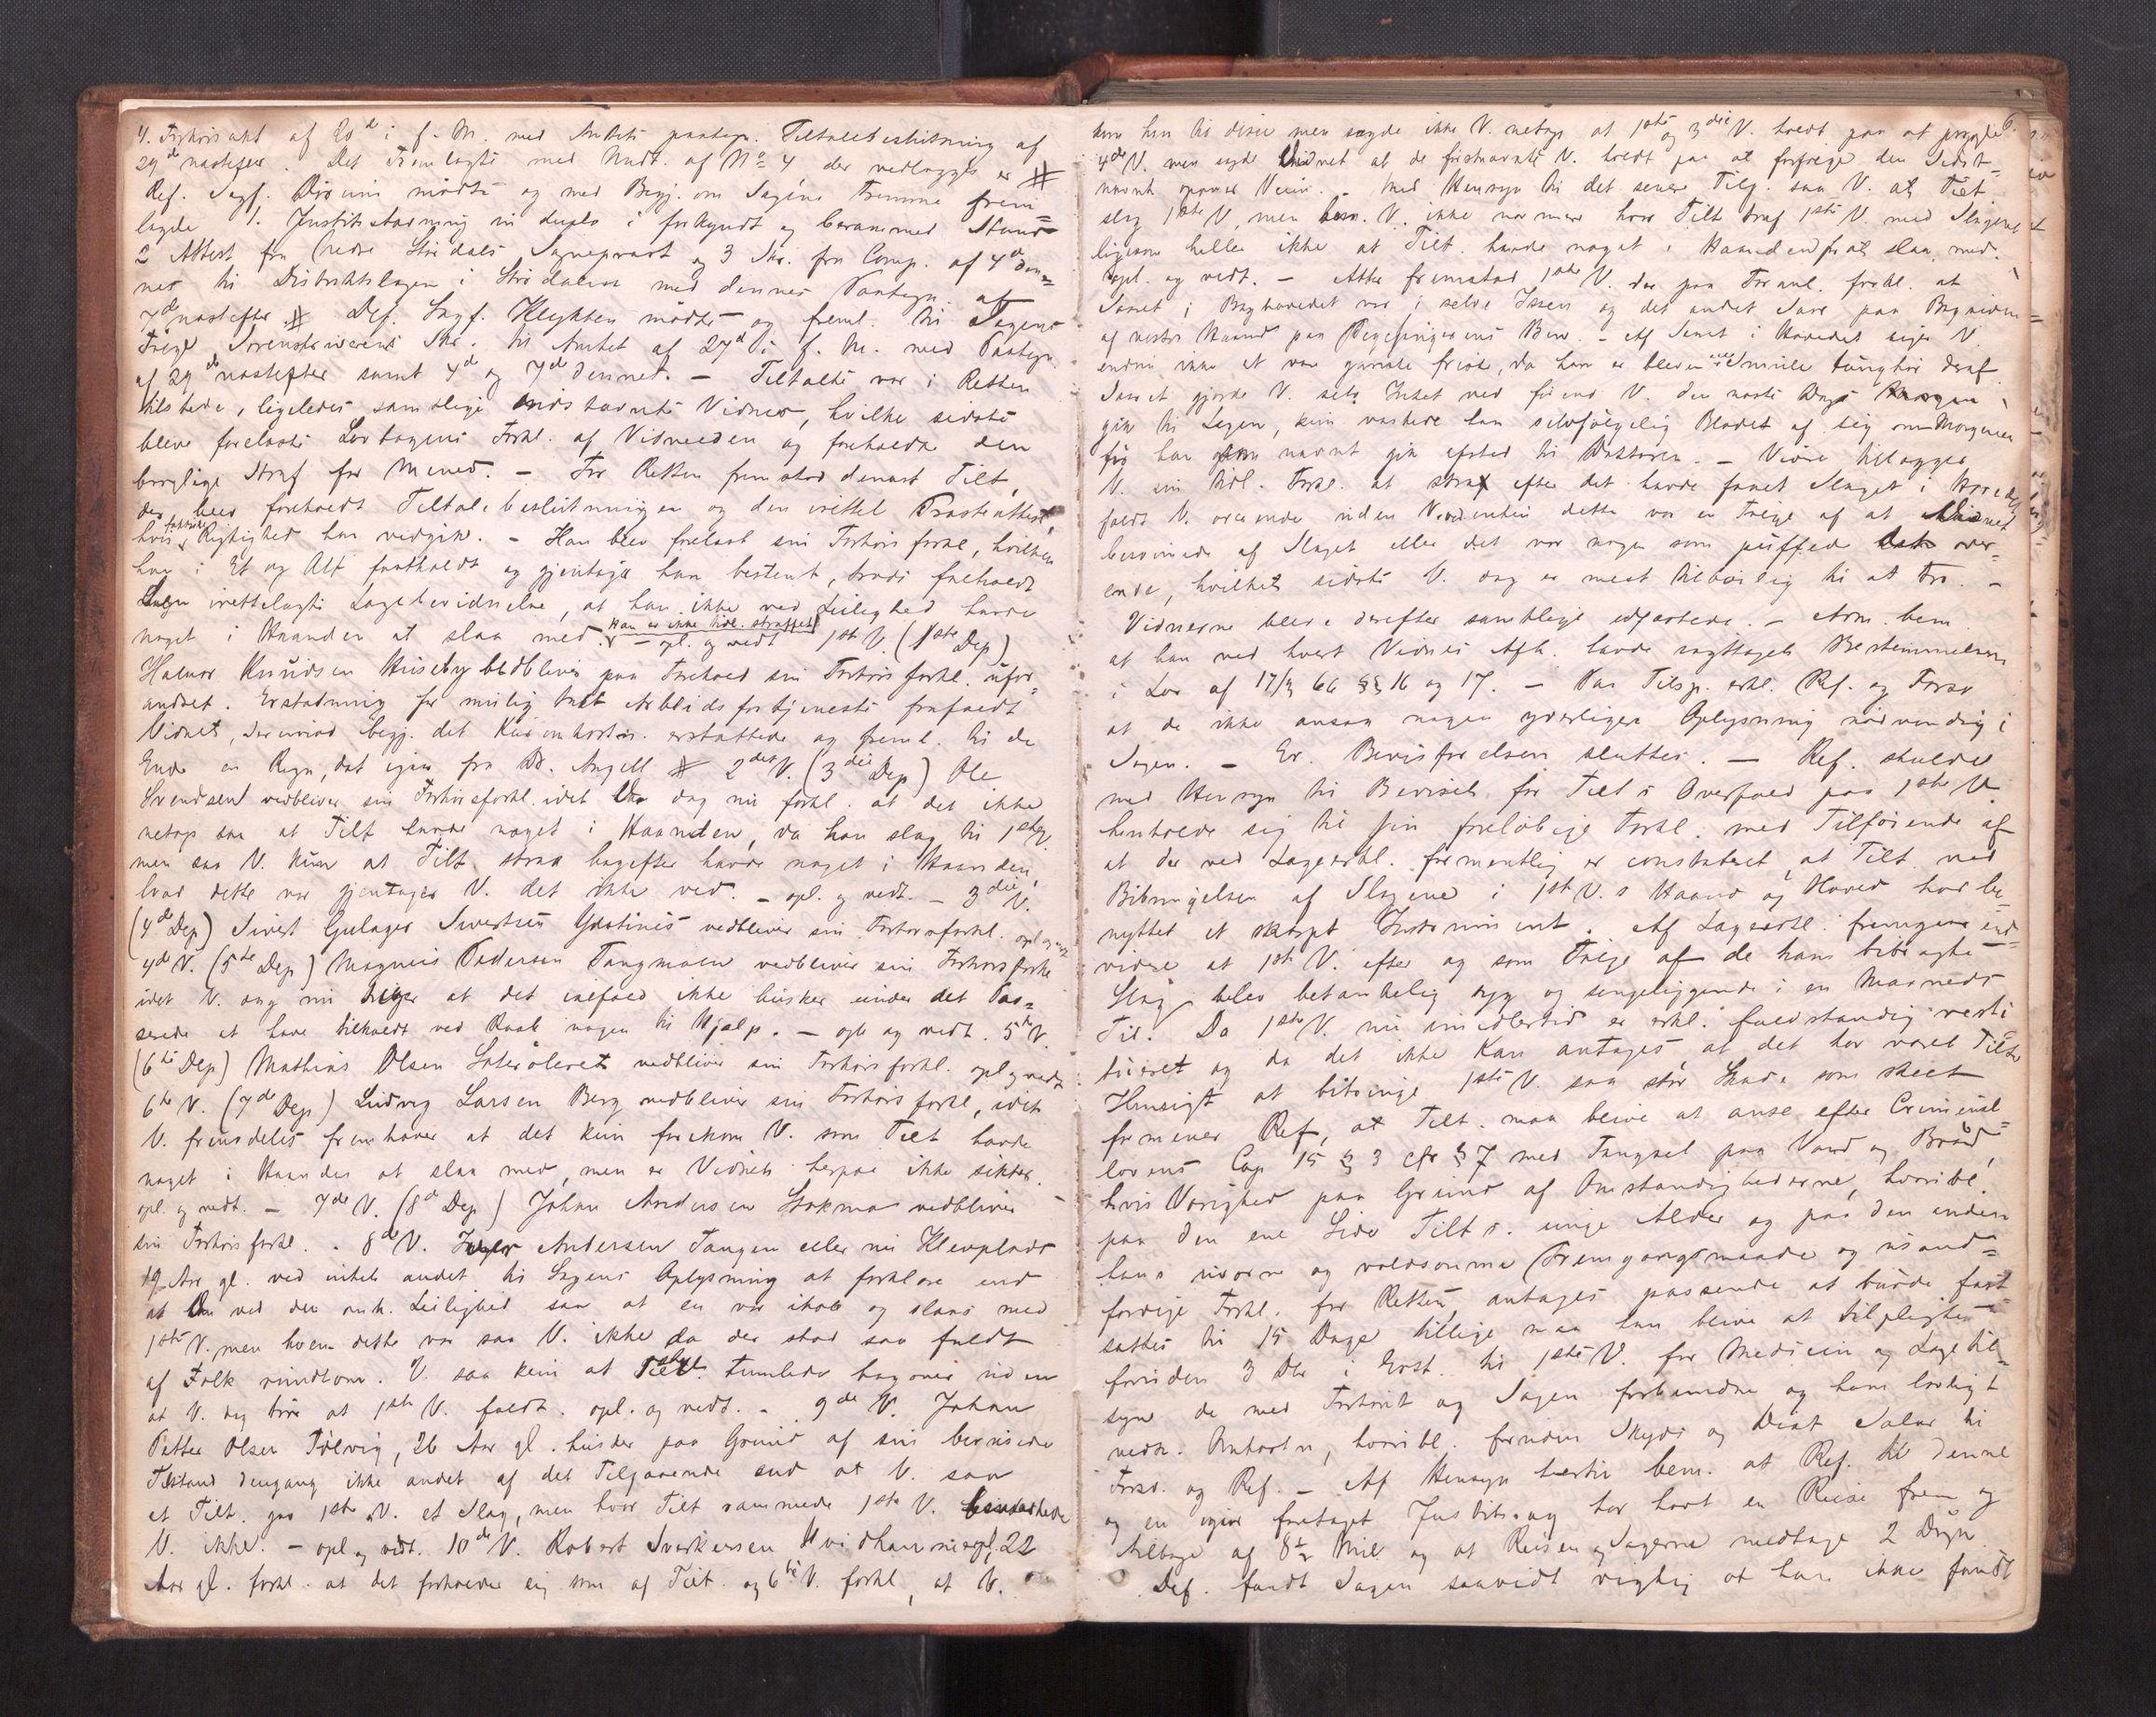 4. Forhørsakt af 20de i f. M. med Amtets paategn. Tiltalebeslutning af
29de næstefter. Det Fremlagte med Undt. af No 4, der vedlægges er #
Ref. Sagf. mødte og med Begj. om Sagens Fremme frem=
lagde 1. Justitsstævning in duplo i forkyndt og berammet Stand
2 Attest fra Nedre Stjørdals Sognepræst og 3 Skr. fra Comp. af 4de den=
nes til Distriktslægen i Stjørdalen med dennes Paategn. af
7de næstefter # Def. Sagf. Klykken mødte og freml. til Sagens
Følge Sorenskriverens Skr. til Amtet af 27de i f. M. med Paategn.
af 29de næstefter samt 4de og 7de dennes. — Tiltalte var i Retten
tilstede, ligeledes samtlige indstævnte Vidner, hvilke sidste
bleve forelæste Lovbogens Forkl. af Vidneeden og foreholdte den
borglige Straf for Mened. — For Retten fremstod dernæst Tilt,
der blev foreholdt Tiltalebeslutningen og den irettel. Præsteattest,
hvis faktiske Rigtighed han vedgik. — Han blev forelæst sin Forhørsforkl, hvilken
han i Et og Alt fastholdt og gjentager han bestemt, trods foreholdt
irettelagte Lægebevidnelse, at han ikke ved Leilighed havde
noget i Haanden at slaa med. Han er ikke tidl. straffet — opl. og vedt 1ste V. (1ste Dep)
Halvor Knudsen Husebye vedbliver paa Forehold sin Forhørsforkl. ufor=
andret. Erstatning for mulig tabt Arbeidsfortjeneste frafaldt
Vidnet, derimod begj. det Kuromkostn. erstattede og freml. til den
Ende en Regn, dat igaar fra Dr. Angell # 2det V. (3die Dep) Ole
Svendsen vedbliver sin Forhørsforkl. idet dog nu forkl. at det ikke
netop saa at Tilt havde noget i Haanden, da han slog til 1ste V.
men saa V. kun at Tilt strax bagefter havde noget i Haanden,
hvad dette var gjentager V. det ikke ved. — opl. og vedt. — 3die V.
(4de Dep) Sivert Gulager Sivertsen vedbliver sin Forhørsforkl. opl og vedt
4de V. (5te Dep) Magnus Pedersen Tangmoen vedbliver sin Forhørsforkl
idet V. dog nu siger at det ialfald ikke husker under det Pas=
serede at have tilkaldt ved Raab nogen til Hjælp. — opl. og vedt. 5te V.
(6te Dep) Mathias Olsen vedbliver sin Forhørsforkl. opl og vedt
6te V. (7de Dep) Ludvig Larsen Berg vedbliver sin Forhørsforkl, idet
V. fremdeles fremhæver at det kun forekom V. som Tilt havde
noget i Haanden at slaa med, men er Vidnet herpaa ikke sikker.
opl. og vedt. — 7de V. (8de Dep) Johan Andersen Stokmo vedbliver
sin Forhørsforkl. — 8de V. Andersen Tangen eller nu Klevplads
19 Aar gl. ved intet andet til Sagens Oplysning at forklare end
at V. ved den omh. Leilighed saa at en var ihob og sloges med
1ste V. men hvem dette var saa V. ikke da der stod saa fuldt
af Folk rundtom. V. saa kun at tumlede bagover uden
at V. tør at 1ste V. faldt. opl. og vedt. — 9de V. Johan
Petter Olsen, 26 Aar gl. husker paa Grund af sin berusede
Tilstand dengang ikke andet af det Tilgaaende end at V. saa
at Tilt. gav 1ste V. et Slag, men hvor Tilt rammede 1ste V. bemærkede
V. ikke. — opl og vedt. 10de V. Robert Sverkersen Hvidhammer, 22
Aar gl. forkl. at det forholder sig som af Tilt. og 6te V. forkl, at V.
6.
4de V. men sagde Vidnet at de førstnævnte V. holdt paa at forfølge den sidst=
nævnte opover Veien. — Med Hensyn til det senere Tilg. saa V. at Tilt
slog 1ste V, men bem. V. ikke nærmere hvor Tilt traf 1ste V. med Slagene
ligesom heller ikke at Tilt. havde noget i Haanden at slaa med.
opl. og vedt. — Atter fremstod 1ste V. der paa Foranl. forkl. at
Saaret i Baghovedet var i selve Issen og det andet Saar paa Bagsiden
af venstre Haand paa Pegefingerens Ben. — Af Saaret i Hovedet siger V.
endnu ikke at være ganske friskt, da han er bleven noget tunghør deraf
Saaret gjorde V. selv Intet ved førend V. den næste Dags Morgen
gik til Lægen, kun vaskede han selvfølgelig Blodet af sig om Morgenen
før han som nævnt gik afsted til Doktoren. — Videre tillægger
V. sin tidl. Forkl. at strax efter det havde faaet Slaget i Hovedet
faldt V. overende uden V. ved enten dette var en Følge af at Vidnet
besvimede af Slaget eller det var nogen som puffede det over=
ende, hvilket sidste V. dog er mest tilbøielig til at tro. —
Vidnerne bleve derefter samtlige edfæstede. — Adm. bem.
at han ved hvert Vidnes Afh. havde iagttaget Bestemmelserne
i Lov af 17/3 66 §§ 16 og 17. — Paa Tilsp. erkl. Ref. og Forsv
at de ikke ansaa nogen yderligere Oplysning nødvendig i
Sagen. — Er. Bevisførelsen sluttes. — Ref. skulde
med Hensyn til Beviset for Tilts Overfald paa 1ste V.
henholde sig til sin foreløbige Forkl. med Tilføiende af
at der ved Lægeerkl. formentlig er constateret, at Tilt. ved
Bibringelsen af Slagene i 1ste V.s Haand og Hoved har be=
nyttet et skarpt Instrument. Af Lægeerkl. fremgaar end=
videre at 1ste V. efter og som Følge af de ham bibragte
Slag blev betænkelig syg og sengeliggende i en Maaneds
Tid. Da 1ste V. nu imidlertid er erkl. fuldstændig resti=
tueret og da det ikke kan antages at det har været Tilts
Hensigt at bibringe 1ste V. saa stor Skade som skeet
formener Ref, at Tilt. maa blive at anse efter Criminal=
lovens Cap 15 § 3 cfr § 7 med Fængsel paa Vand og Brød,
hvis Varighed paa Grund af Omstændighederne, hvoribl.
paa den ene Side Tilts. unge Alder og paa den anden
hans uvorne og voldsomme Fremgangsmaade og usand=
færdige Forkl. for Retten, antages passende at burde fast
sættes til 15 Dage tillige maa han blive at tilpligte
foruden 3 Dlr i Erst. til 1ste V. for Medicin og Lægetil=
syn de med Forhørit og Sagen forbundne og ham lovligt
vedk. Omkostn, hvoribl. foruden Skyds og Diæt Salær til
Forsv. og Ref. — Af Hensyn hertil bem. at Ref. til denne
og en igaar foretaget Justitssag har havt en Reise frem og
tilbage af 8½ Mil og at Reisen og Sagerne medtage 2 Døgn.
Def. fandt Sagen saavidt rigtig at han ikke fandt